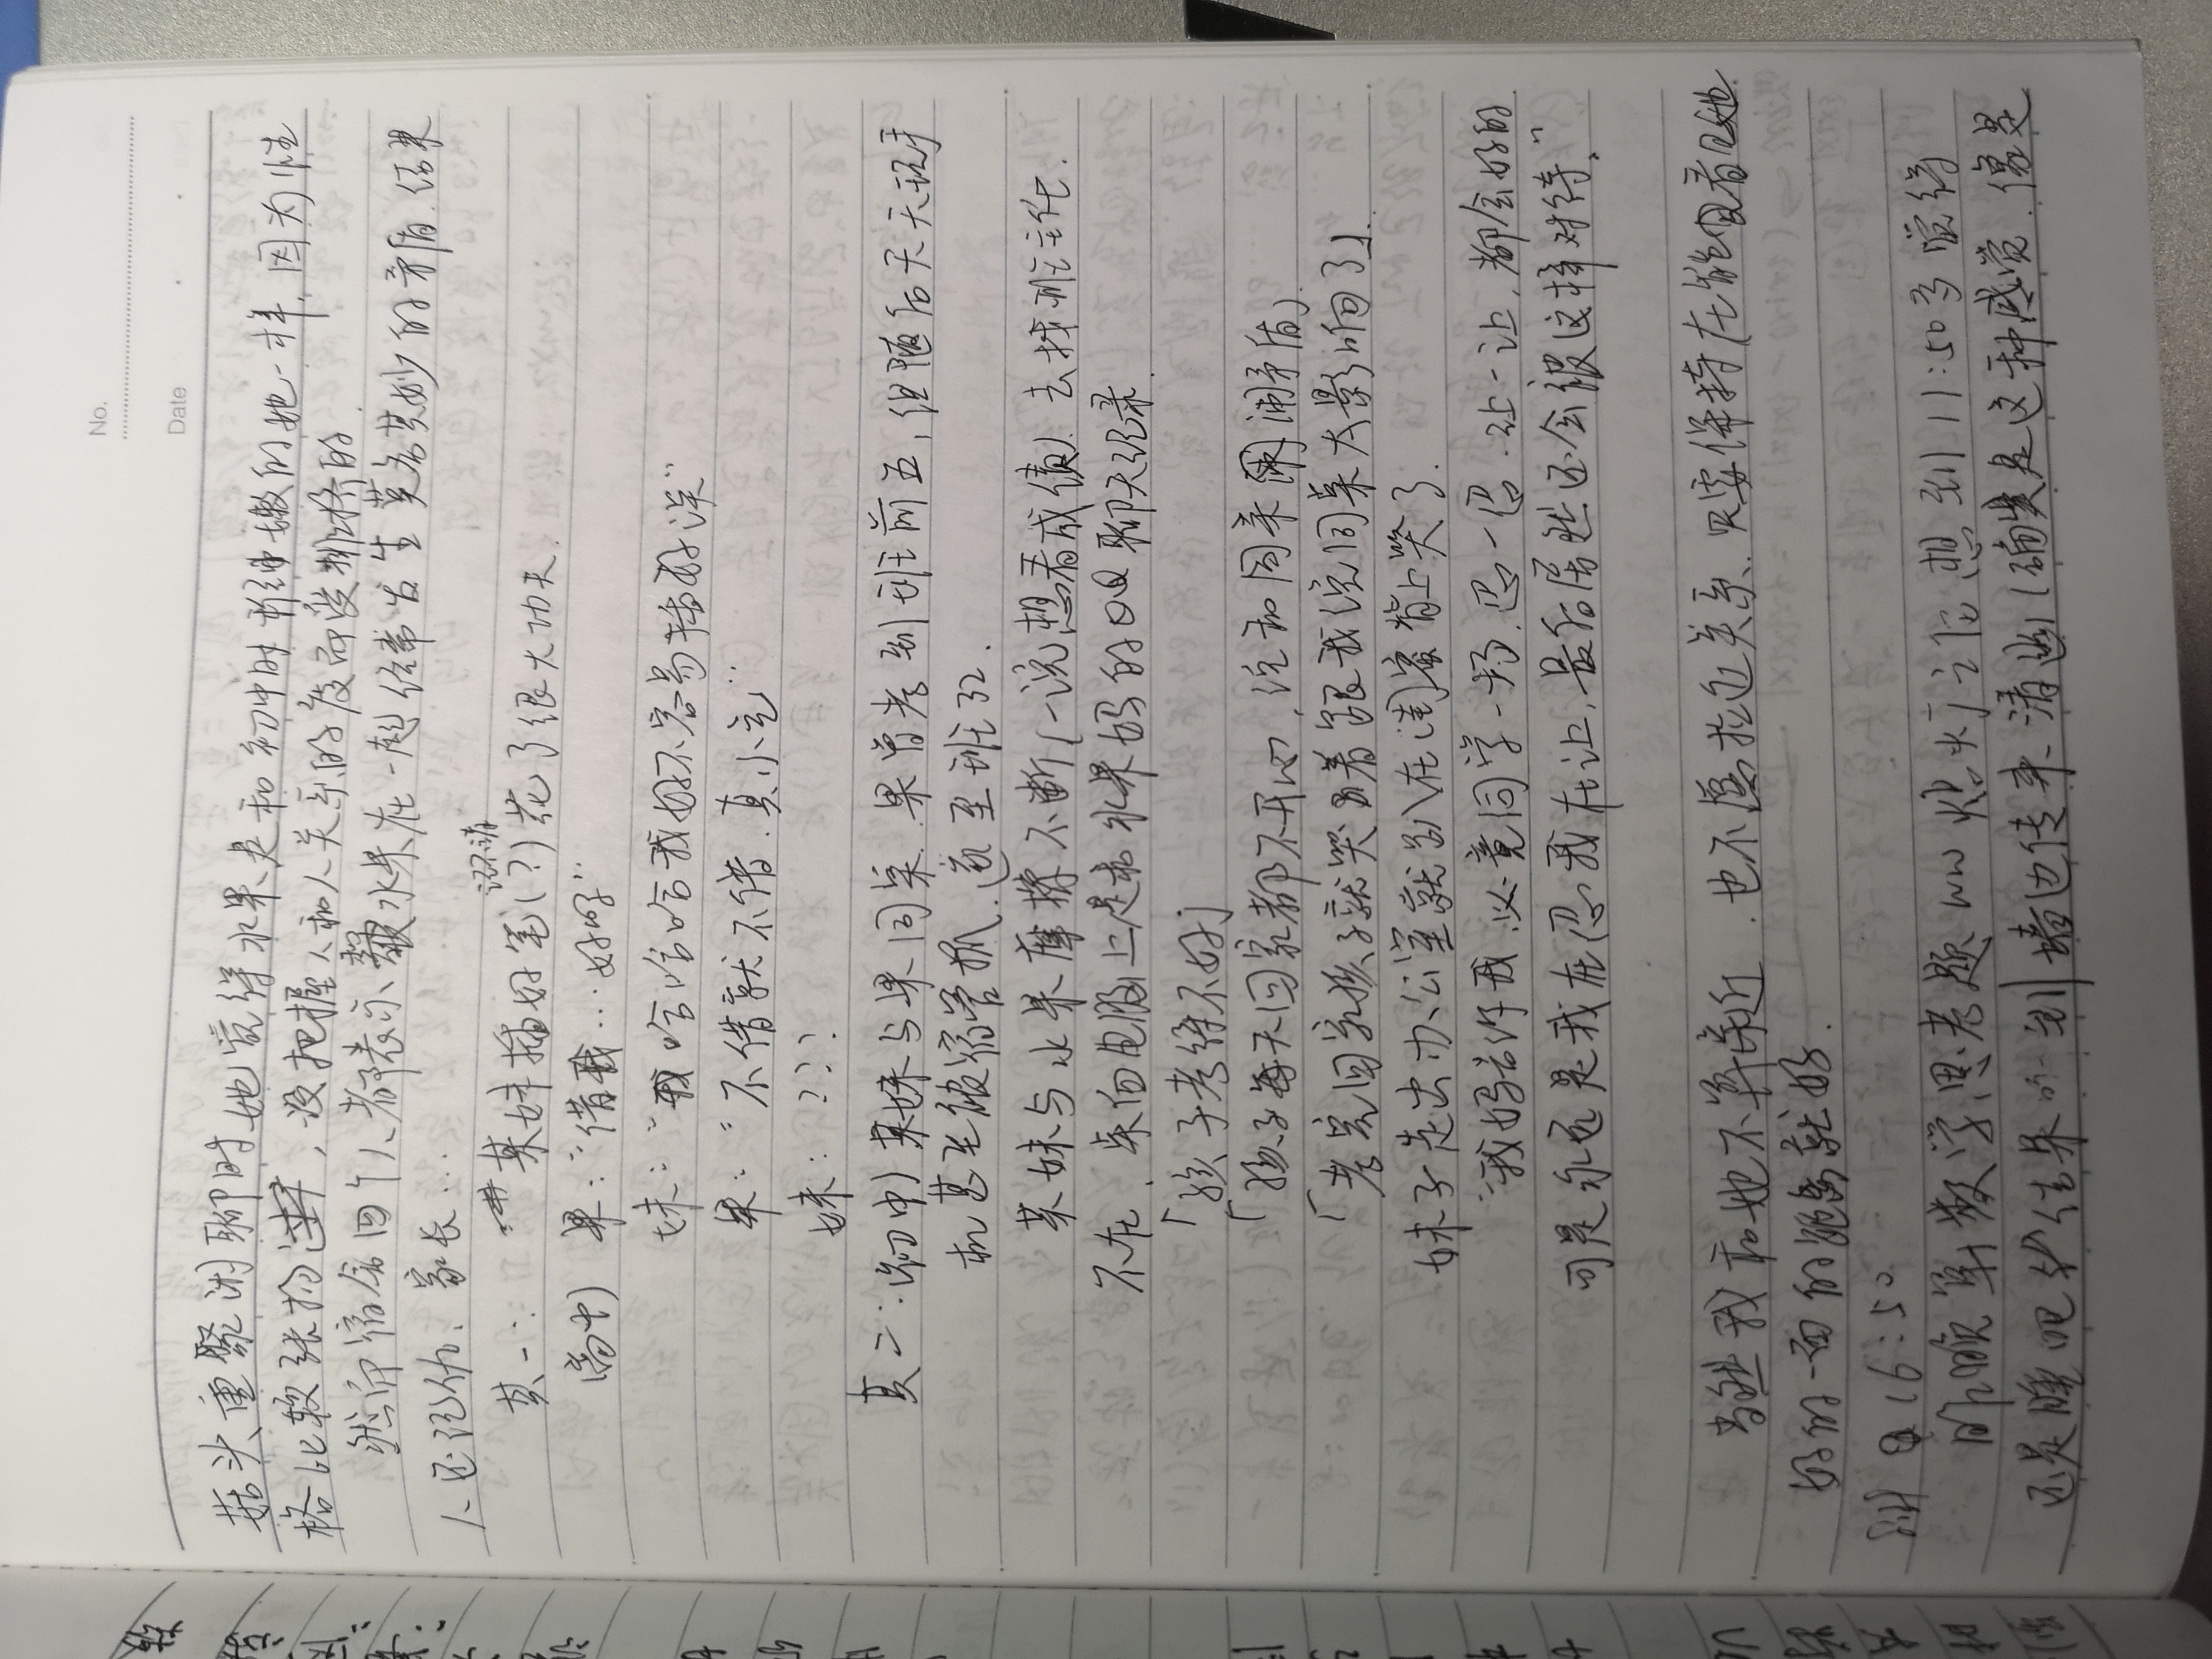 No.
Date
菇头重聚闲聊时她觉得水果是和初中时稚嫩的她一样，因为性
格比较张扬，没把握人和人关系的度而受排挤的.
然而宿舍四个人都表示跟水果在一起经常发生莫名其妙的矛盾.结果
人还记仇、家长…
其一： 某妹插好笔(?)花了很大功夫.
记不清
高中) 果：“借我…好呀”
妹：“我哈哈哈我好不容易插好诶”
果：“不借就不借.真小气”
妹：???
其二：(初中) 某妹与果同桌.果曾考到班前五，但随后天天玩手
机甚至被宿管抓.退至班32.
某妹与水果摩擦不断(一说想看成绩).去找班主任.
不在，桌面电脑上是和水果妈的QQ聊天记录.
「孩子考得不好」
「孩子每天回家都不开心，说和同桌闹矛盾」.
「考完回家孩子就哭着跟我说同桌太影响了」.
妹子走出办公室就趴在闺蜜背上哭了.
“我妈告诉我，必竟同学一场，忍一忍.让一让，都会好的.
可是永远是我在忍我在让，最后居然还会被这样对待.”
当然我和她不算亲近.也不愿拉近关系.只要保持在能看见她
好的一面的距离就好.
16:50
昨晚算数学思考题 熄灯之后想到11:50多觉得
还是睡吧 结果听到墙边传来清幽(确实是这种感觉.像是